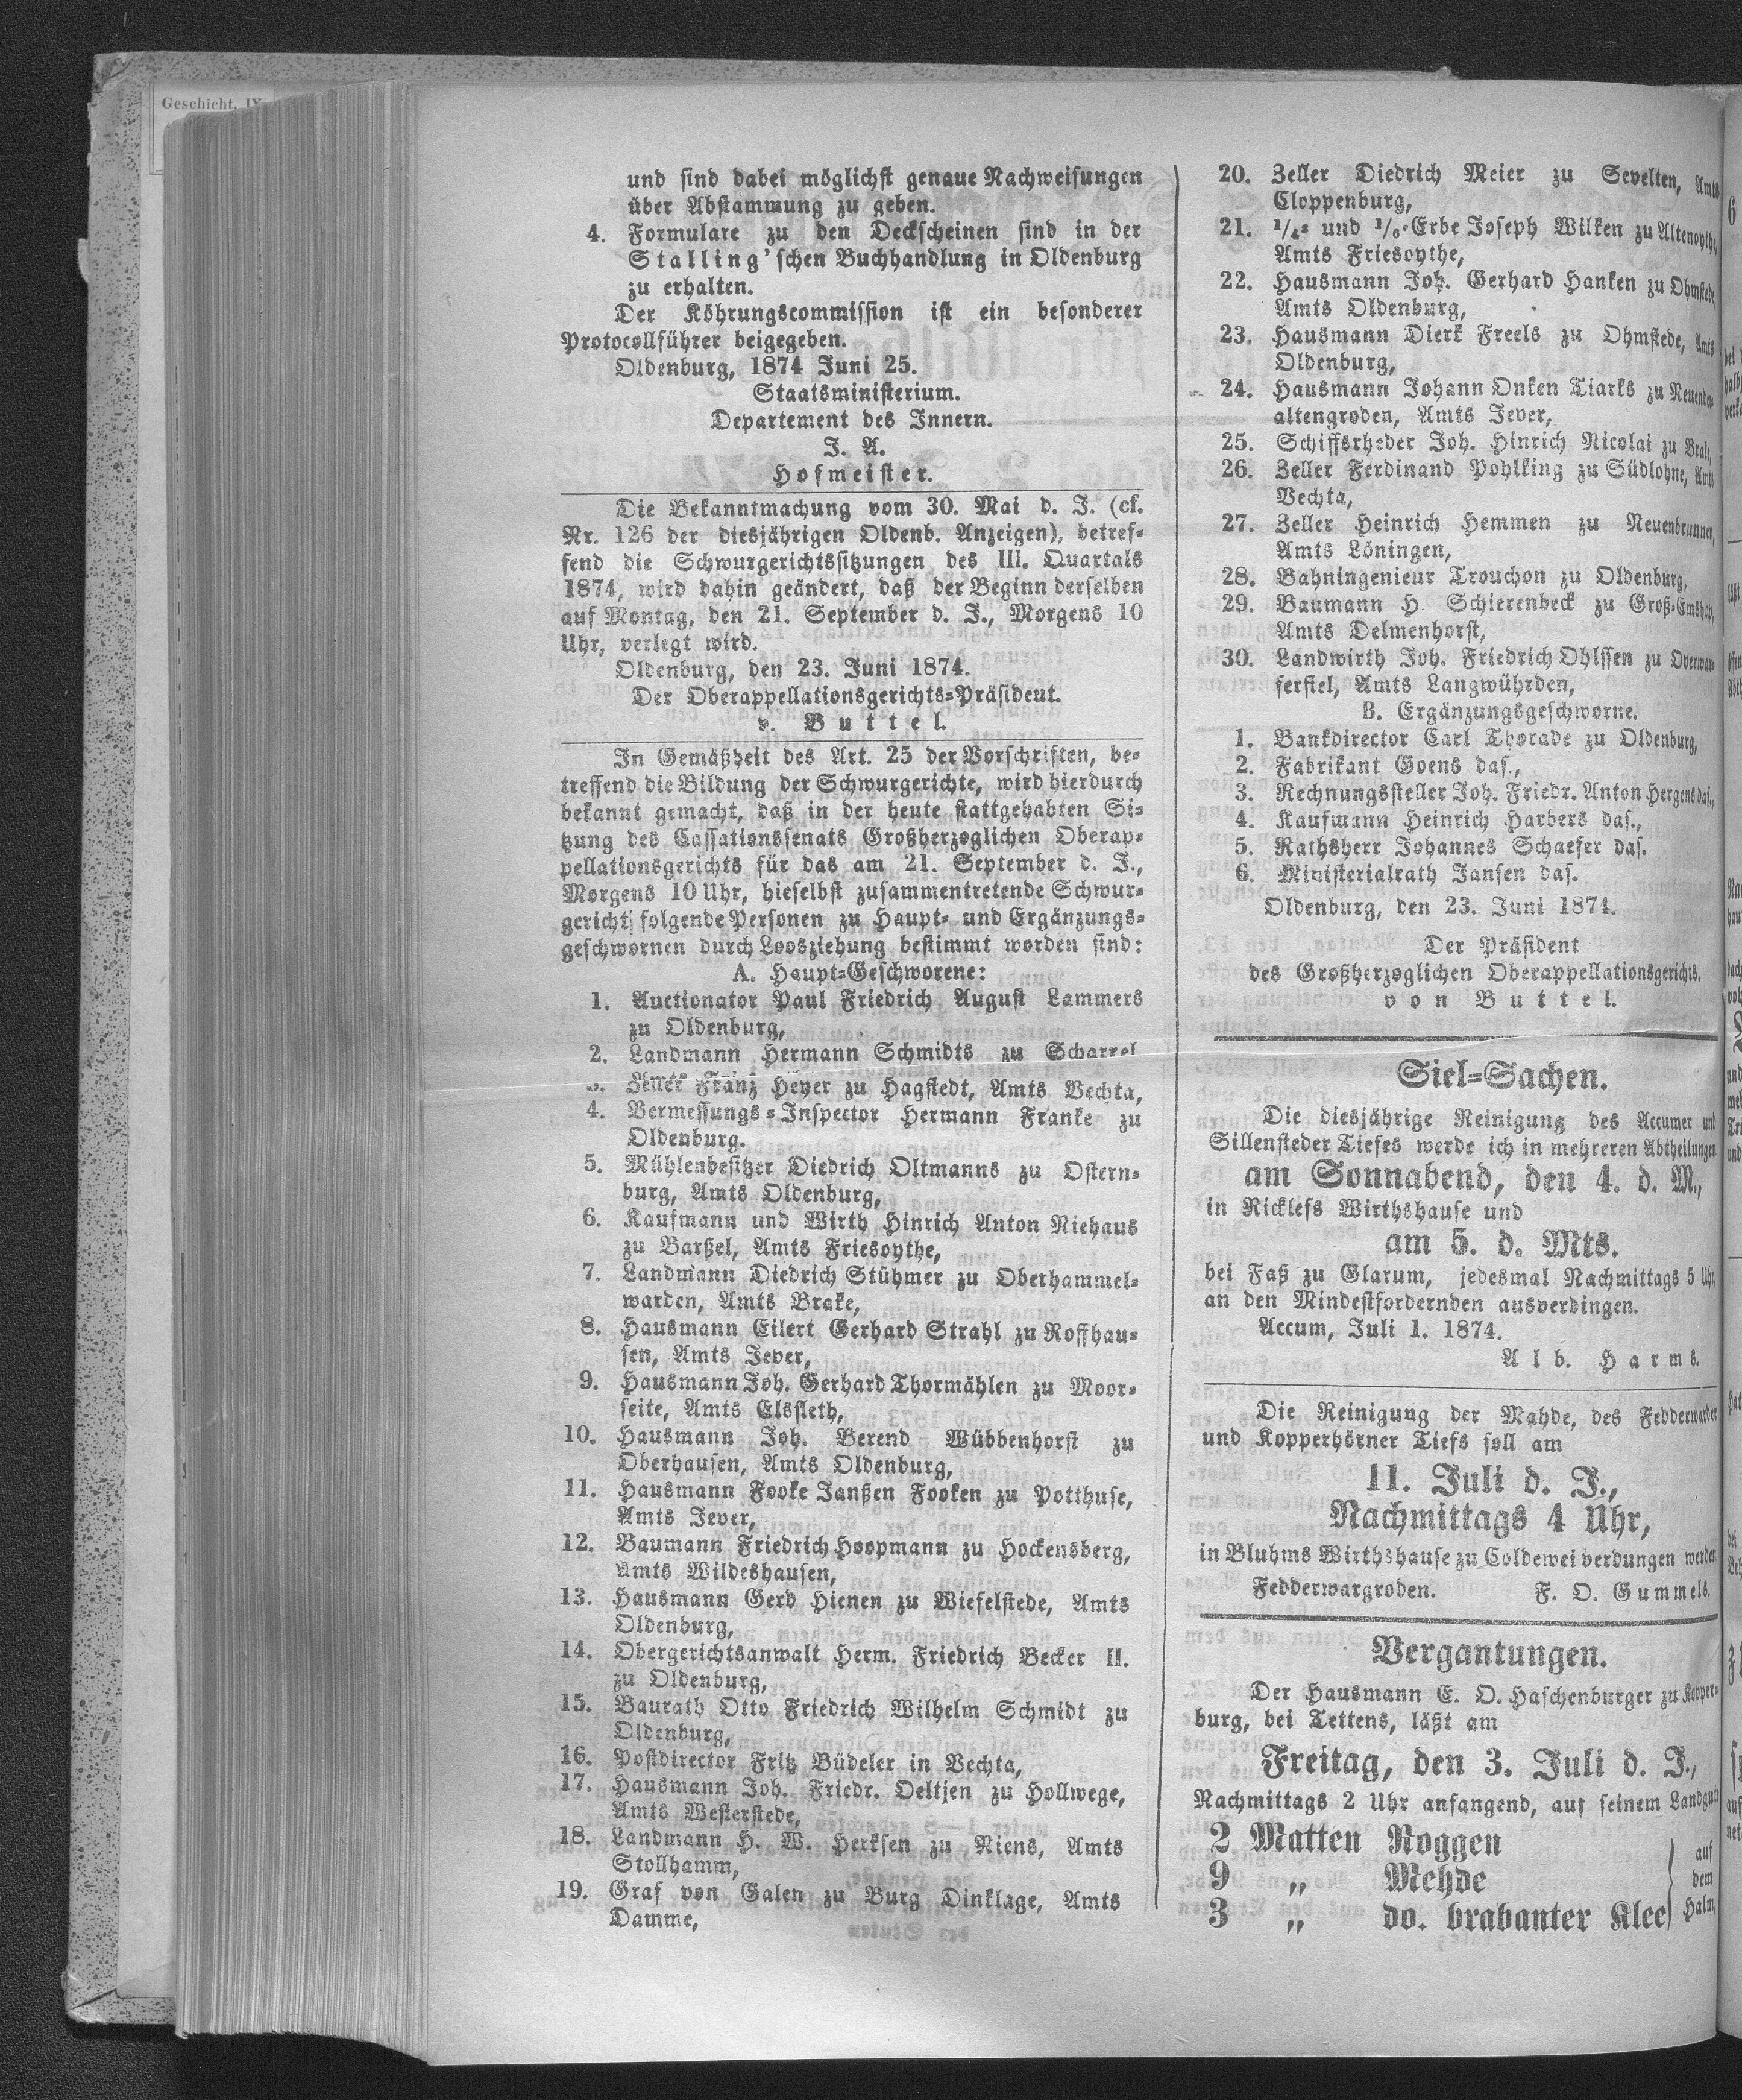 Geschicht. IX
und sind dabei möglichst genaue Nachweisungen
über Abstammung zu geben.
4. Formulare zu den Deckscheinen sind in der
Stalling'schen Buchhandlung in Oldenburg
zu erhalten.
Der Köhrungscommission ist ein besonderer
Protocollführer beigegeben.
Oldenburg, 1874 Juni 25.
Staatsministerium.
Departement des Innern.
J. A.
Hofmeister.
Die Bekanntmachung vom 30. Mai d. J. (cf.
Nr. 126 der diesjährigen Oldenb. Anzeigen), betref-
fend die Schwurgerichtssitzungen des III. Quartals
1874, wird dahin geändert, daß der Beginn derselben
auf Montag, den 21. September d. J., Morgens 10
Uhr, verlegt wird.
Oldenburg, den 23. Juni 1874.
Der Oberappellationsgerichts-Präsident.
v. Buttel.
In Gemäßheit des Art. 25 der Vorschriften, be-
treffend die Bildung der Schwurgerichte, wird hierdurch
bekannt gemacht, daß in der heute stattgehabten Si-
tzung des Cassationssenats Großherzoglichen Oberap-
pellationsgerichts für das am 21. September d. J.,
Morgens 10 Uhr, hieselbst zusammentretende Schwur-
gericht folgende Personen zu Haupt- und Ergänzungs-
geschwornen durch Loosziehung bestimmt worden sind:
A. Haupt-Geschworene:
1. Auctionator Paul Friedrich August Lammers
zu Oldenburg,
2. Landmann Hermann Schmidts zu Scharrel
3. Zeller Franz Heyer zu Hagstedt, Amts Vechta,
4. Vermessungs-Inspector Hermann Franke zu
Oldenburg.
5. Mühlenbesitzer Diedrich Oltmanns zu Ostern-
burg, Amts Oldenburg,
6. Kaufmann und Wirth Hinrich Anton Niehaus
zu Barßel, Amts Friesoythe,
7. Landmann Diedrich Stühmer zu Oberhammel-
warden, Amts Brake,
8. Hausmann Eilert Gerhard Strahl zu Roffhau-
sen, Amts Jever,
9. Hausmann Joh. Gerhard Thormählen zu Moor-
seite, Amts Elsfleth,
10. Hausmann Joh. Berend Wübbenhorst zu
Oberhausen, Amts Oldenburg,
11. Hausmann Fooke Janßen Fooken zu Potthuse,
Amts Jever,
12. Baumann Friedrich Hoopmann zu Hockensberg,
Amts Wildeshausen,
13. Hausmann Gerd Hienen zu Wiefelstede, Amts
Oldenburg,
14. Obergerichtsanwalt Herm. Friedrich Becker II.
zu Oldenburg,
15. Baurath Otto Friedrich Wilhelm Schmidt zu
Oldenburg,
16. Postdirector Fritz Büdeler in Vechta,
17. Hausmann Joh. Friedr. Oeltjen zu Hollwege,
Amts Westerstede,
18. Landmann H. W. Herksen zu Riens, Amts
Stollhamm,
19. Graf von Galen zu Burg Dinklage, Amts
Damme,
20. Zeller Diedrich Meier zu Sevelten, Amts
Cloppenburg,
21. 1/4- und 1/6-Erbe Joseph Wilken zu Altenoythe,
Amts Friesoythe,
22. Hausmann Joh. Gerhard Hanken zu Ohmstede,
Amts Oldenburg,
23. Hausmann Dierk Freels zu Ohmstede, Amts
Oldenburg,
24. Hausmann Johann Onken Tiarks zu Neuender-
altengroden, Amts Jever,
25. Schiffsrheder Joh. Hinrich Nicolai zu Brake,
26. Zeller Ferdinand Pohlking zu Südlohne, Amts
Vechta,
27. Zeller Heinrich Hemmen zu Neuenbrunnen,
Amts Löningen,
28. Bahningenieur Trouchon zu Oldenburg,
29. Baumann H. Schierenbeck zu Groß-Emshop,
Amts Delmenhorst,
30. Landwirth Joh. Friedrich Ohlssen zu Overwar-
fersiel, Amts Langwührden,
B. Ergänzungsgeschworne.
1. Bankdirector Carl Thorade zu Oldenburg,
2. Fabrikant Goens das.,
3. Rechnungssteller Joh. Friedr. Anton Hergens das.,
4. Kaufmann Heinrich Harbers das.,
5. Rathsherr Johannes Schaefer das.
6. Ministerialrath Jansen das.
Oldenburg, den 23. Juni 1874.
Der Präsident
des Großherzoglichen Oberappellationsgerichts.
von Buttel.
Siel-Sachen.
Die diesjährige Reinigung des Accumer und
Sillensteder Tiefes werde ich in mehreren Abtheilungen
am Sonnabend, den 4. d. M.,
in Ricklefs Wirthshause und
am 5. d. Mts.
bei Faß zu Glarum, jedesmal Nachmittags 5 Uhr,
an den Mindestfordernden ausverdingen.
Accum, Juli 1. 1874.
Alb. Harms.
Die Reinigung der Mahde, des Fedderwarder
und Kopperhörner Tiefs soll am
11. Juli d. J.,
Nachmittags 4 Uhr,
in Bluhms Wirthshause zu Coldewei verdungen werden
Fedderwargroden. F. O. Gummels.
Vergantungen.
Der Hausmann E. O. Haschenburger zu Kopper-
burg, bei Tettens, läßt am
Freitag, den 3. Juli d. J.,
Nachmittags 2 Uhr anfangend, auf seinem Landgute
2 Matten Roggen
9 „ Mehde
3 „ do. brabanter Klee
auf
dem
Halm,